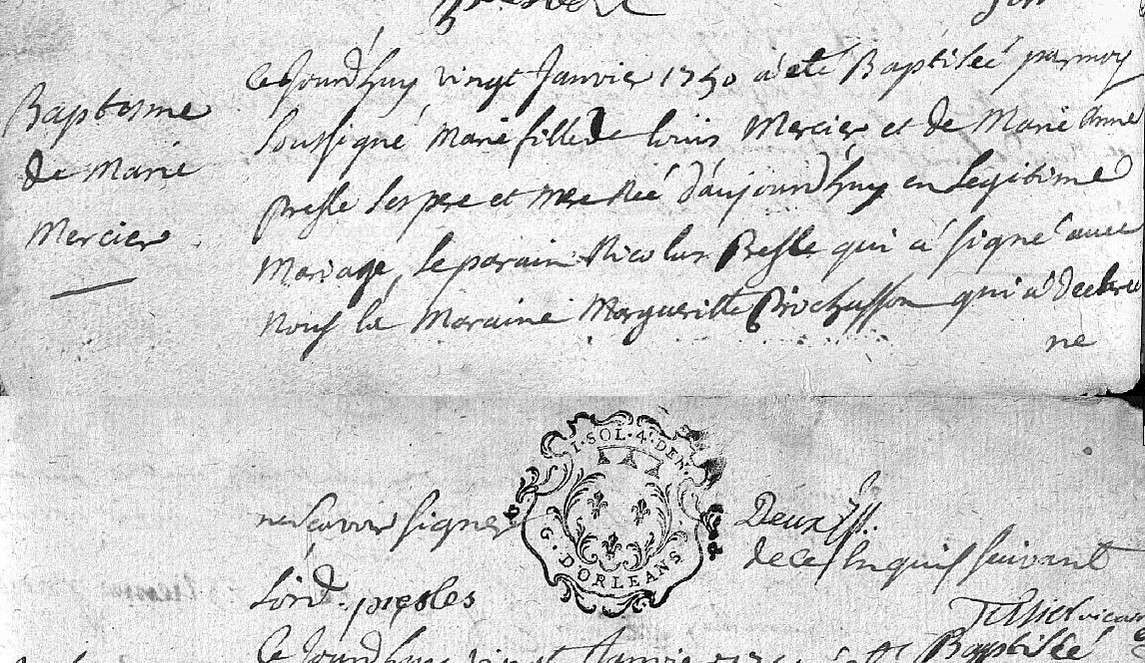 Baptesme
de Marie
Mercier
Ce Jourd'huy vingt Janvier 1750 a été Baptisée par moy
soussigné Marie fille de louis Mercier et de Marie Anne
presle ses pere et mere Née d'aujourd'huy en legitime
Mariage, le parain Nicolas Presle qui a signé avec
nous la Maraine Margueritte Brochusson qui a declaré
ne
ne scavoir signer
I·SOL·4·DEN.
G. D'ORLEANS
Deux
de ce suivant
presles
Tellier vicaire
Ce Jourd'huy vingt Janvier Baptisée